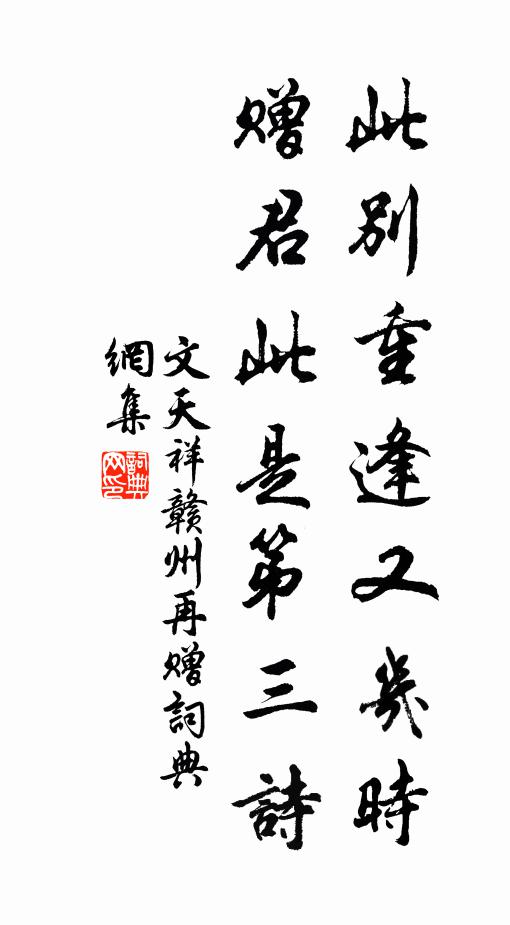 此別重逢又幾時
贈君此是第三詩
文天祥贛州再贈詞典
網集
詞典网印